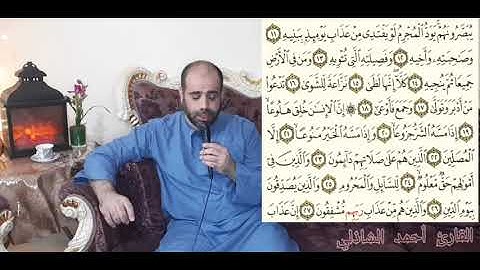 يُبَصَّرُونَهُمْ يَوَدُّ ٱلْمُجْرِمُ لَوْ يَفْتَدِى مِنْ عَذَابِ يَوْمِئِذٍۭ بِبَنِيهِ ١١
وَصَٰحِبَتِهِۦ وَأَخِيهِ ١٢ وَفَصِيلَتِهِ ٱلَّتِى تُـْٔوِيهِ ١٣ وَمَن فِى ٱلْأَرْضِ
جَمِيعًا ثُمَّ يُنجِيهِ ١٤ كَلَّآ إِنَّهَا لَظَىٰ ١٥ نَزَّاعَةً لِّلشَّوَىٰ ١٦ تَدْعُوا۟
مَنْ أَدْبَرَ وَتَوَلَّىٰ ١٧ وَجَمَعَ فَأَوْعَىٰٓ ١٨ ۞ إِنَّ ٱلْإِنسَٰنَ خُلِقَ هَلُوعًا
١٩ إِذَا مَسَّهُ ٱلشَّرُّ جَزُوعًا ٢٠ وَإِذَا مَسَّهُ ٱلْخَيْرُ مَنُوعًا ٢١ إِلَّا
ٱلْمُصَلِّينَ ٢٢ ٱلَّذِينَ هُمْ عَلَىٰ صَلَاتِهِمْ دَآئِمُونَ ٢٣ وَٱلَّذِينَ فِىٓ
أَمْوَٰلِهِمْ حَقٌّ مَّعْلُومٌ ٢٤ لِّلسَّآئِلِ وَٱلْمَحْرُومِ ٢٥ وَٱلَّذِينَ يُصَدِّقُونَ
بِيَوْمِ ٱلدِّينِ ٢٦ وَٱلَّذِينَ هُم مِّنْ عَذَابِ رَبِّهِم مُّشْفِقُونَ ٢٧ إِنَّ عَذَابَ
القارئ أحمد الشاذلي